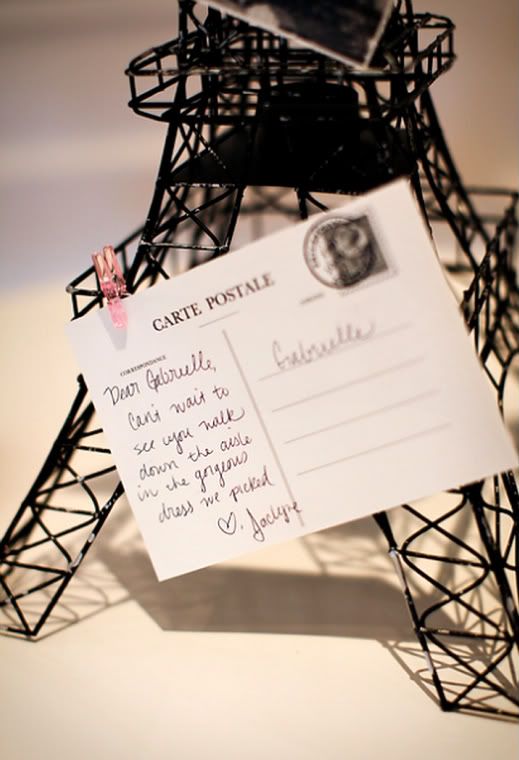 CARTE POSTALE
CORRESPONDANCE
Dear Gabrielle,
Can't wait to
see you walk
down the aisle
in the gorgeous
dress we picked
♡, Jaclyne
Gabrielle